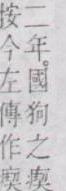 二年。國狗之瘈
按今左傳作瘈